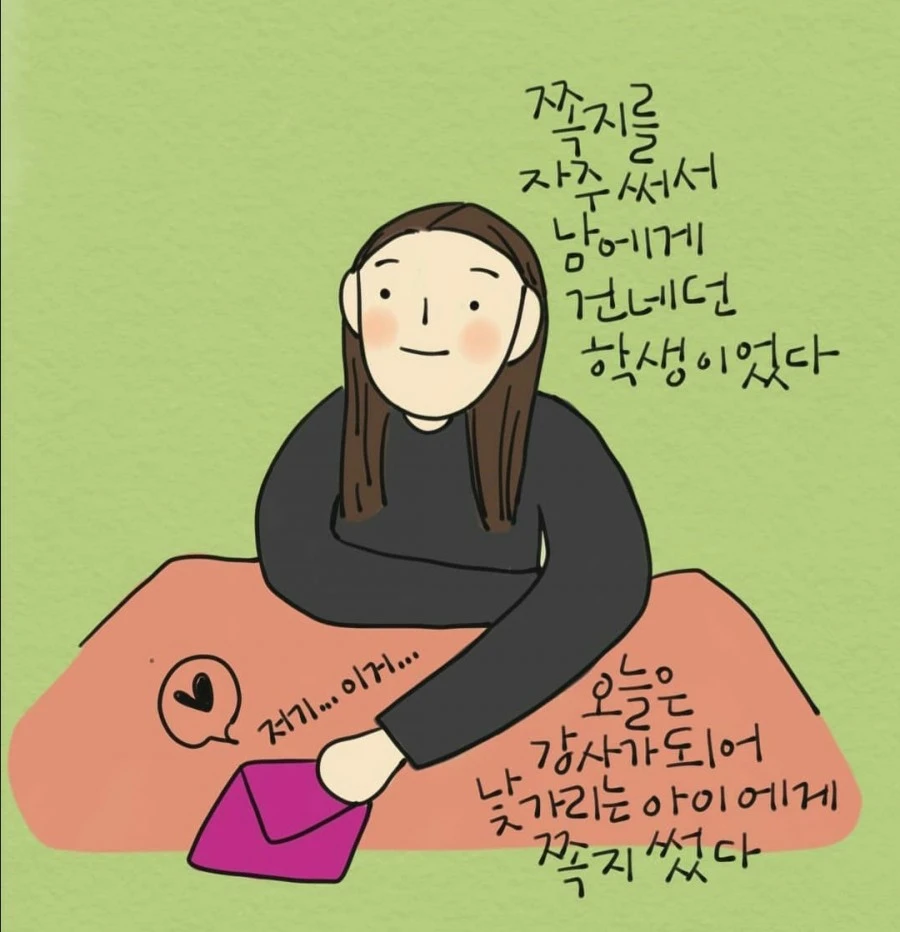 쪽지를
자주 써서
남에게
건네던
학생이었다
저기... 이거...
오늘은
강사가 되어
낯가리는 아이에게
쪽지 썼다